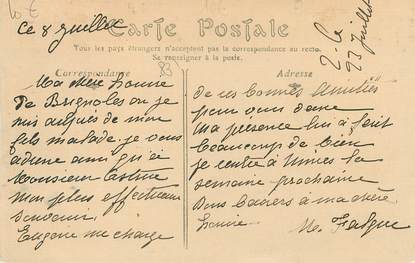 Ce 8 Juillet
Carte Postale
Tous les pays étrangers n'acceptent pas la correspondance au recto.
Se renseigner à la poste.
Correspondance
83
Adresse
Ma chère
de Brignoles ou je
suis auprès de mon
fils malade. je vous
adresse ainsi qu'à
Monsieur
mon plus affectueux
souvenir.
Eugène me charge
de ses bonnes amitiés
pour vous dame
Ma présence lui a fait
beaucoup de bien
je rentre à Nimes la
semaine prochaine
Bons baisers à ma chère
Me
23 Juillet